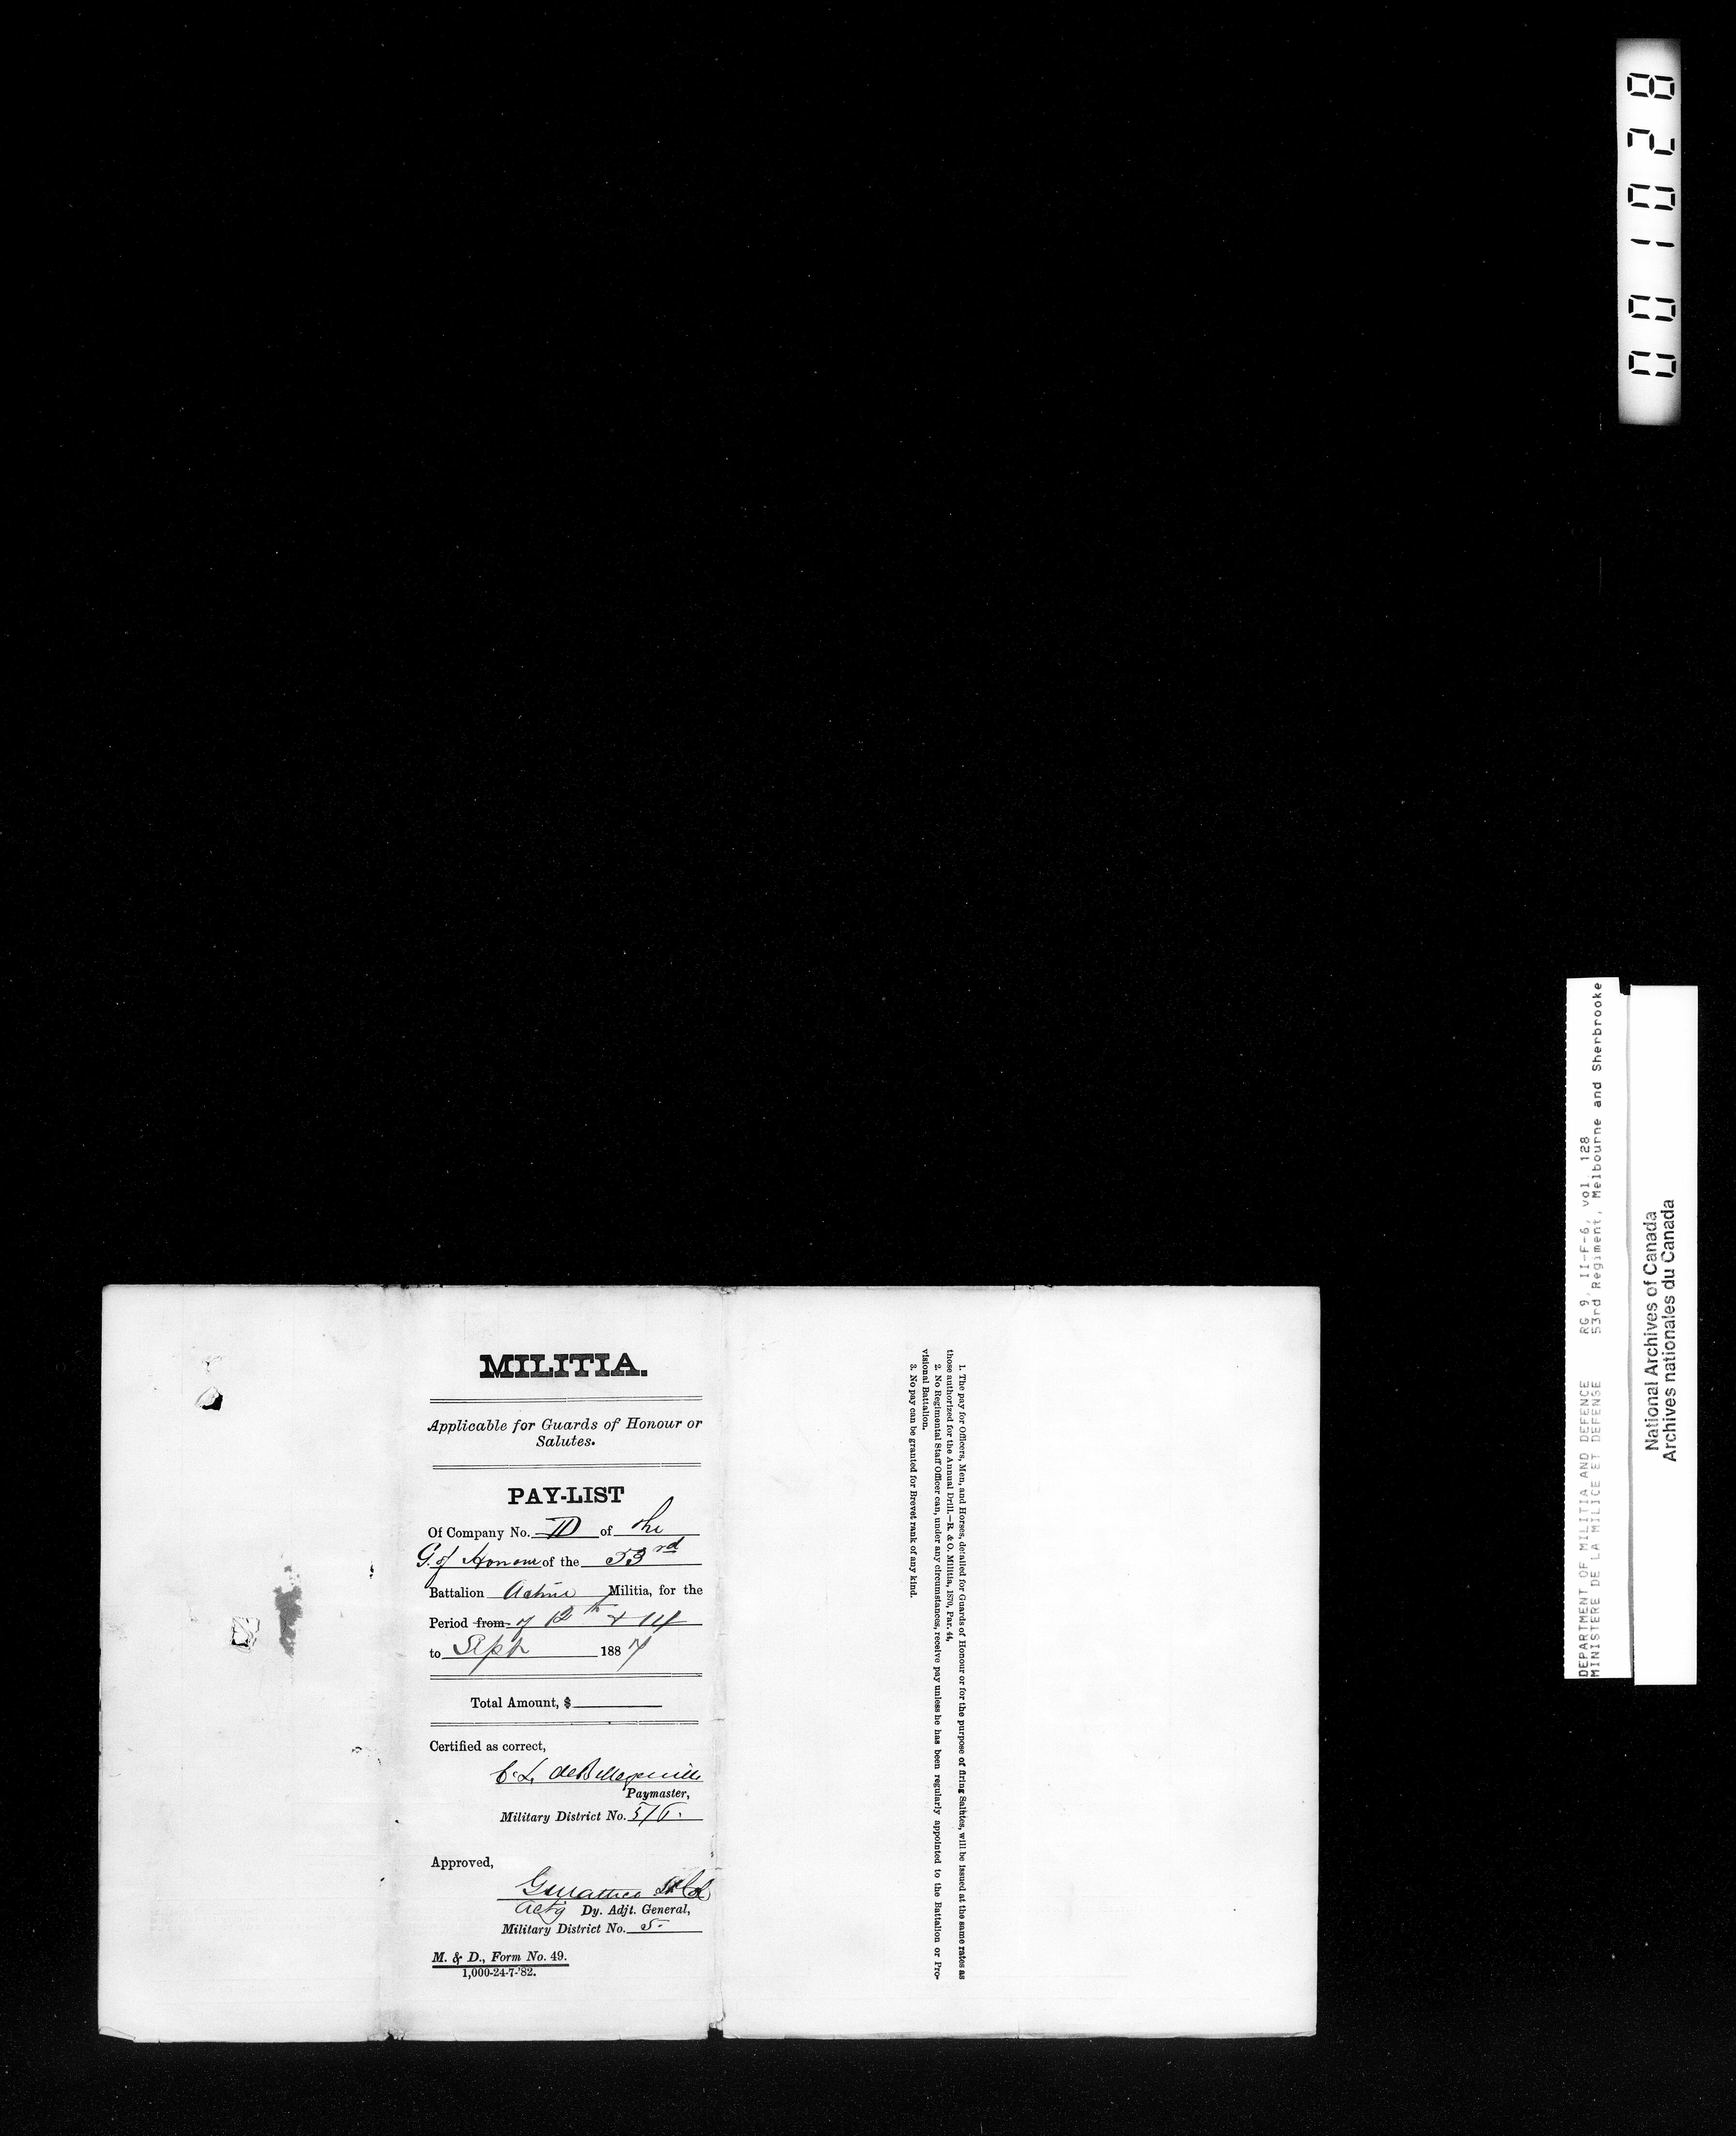 001028
DEPARTMENT OF MILITIA AND DEFENCE RG 9, II-F-6, vol 128
MINISTERE DE LA MILICE ET DEFENSE 53rd Regiment, Melbourne and Sherbrooke
National Archives of Canada
Archives nationales du Canada
MILITIA.
Applicable for Guards of Honour or
Salutes.
PAY-LIST
Of Company No. of the
G. of Honour of the 53rd
Battalion Active Militia, for the
Period from of 12th & 14
to Sept 1887
Total Amount, $
Certified as correct,
C. L. de Bellefeuille
Paymaster,
Military District No. 5/6.
Approved,
Actg Dy. Adjt. General,
Military District No. 5.
M. & D., Form No. 49.
1,000-24-7-'82.
1. The pay for Officers, Men, and Horses, detailed for Guards of Honour or for the purpose of firing Salutes, will be issued at the same rates as
those authorized for the Annual Drill.—R. & O. Militia, 1870, Par. 44.
2. No Regimental Staff Officer can, under any circumstances, receive pay unless he has been regularly appointed to the Battalion or Pro-
visional Battalion.
3. No pay can be granted for Brevet rank of any kind.